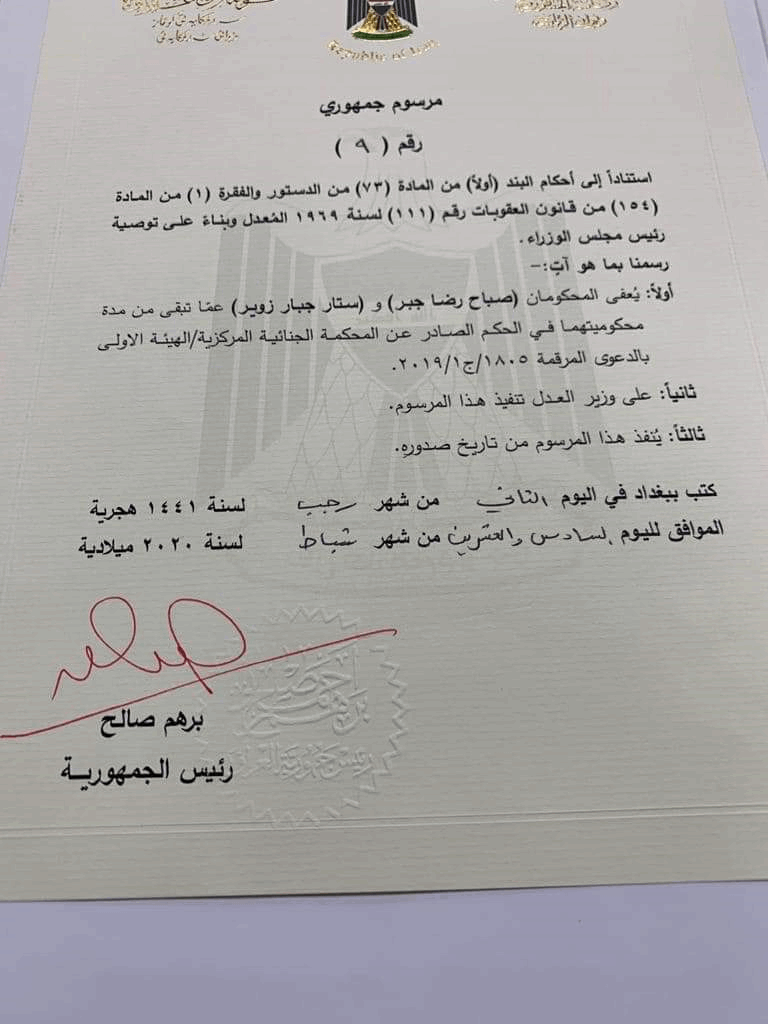 Republic of Iraq
مرسوم جمهوري
رقم ( ٩ )
استناداً إلى أحكام البند (أولاً) من المادة (٧٣) من الدستور والفقرة (١) من المادة
(١٥٤) من قانون العقوبات رقم (١١١) لسنة ١٩٦٩ المُعدل وبناءً على توصية
رئيس مجلس الوزراء.
رسمنا بما هو آتٍ:–
أولاً: يُعفى المحكومان (صباح رضا جبر) و (ستار جبار زوير) عمّا تبقى من مدة
محكوميتهما في الحكم الصادر عن المحكمة الجنائية المركزية/الهيئة الاولى
بالدعوى المرقمة ١٨٠٥/ج١/٢٠١٩.
ثانياً: على وزير العدل تنفيذ هذا المرسوم.
ثالثاً: يُنفذ هذا المرسوم من تاريخ صدوره.
كتب ببغداد في اليوم الثاني من شهر رجب لسنة ١٤٤١ هجرية
الموافق لليوم السادس والعشرين من شهر شباط لسنة ٢٠٢٠ ميلادية
برهم صالح
رئيس الجمهوريـة